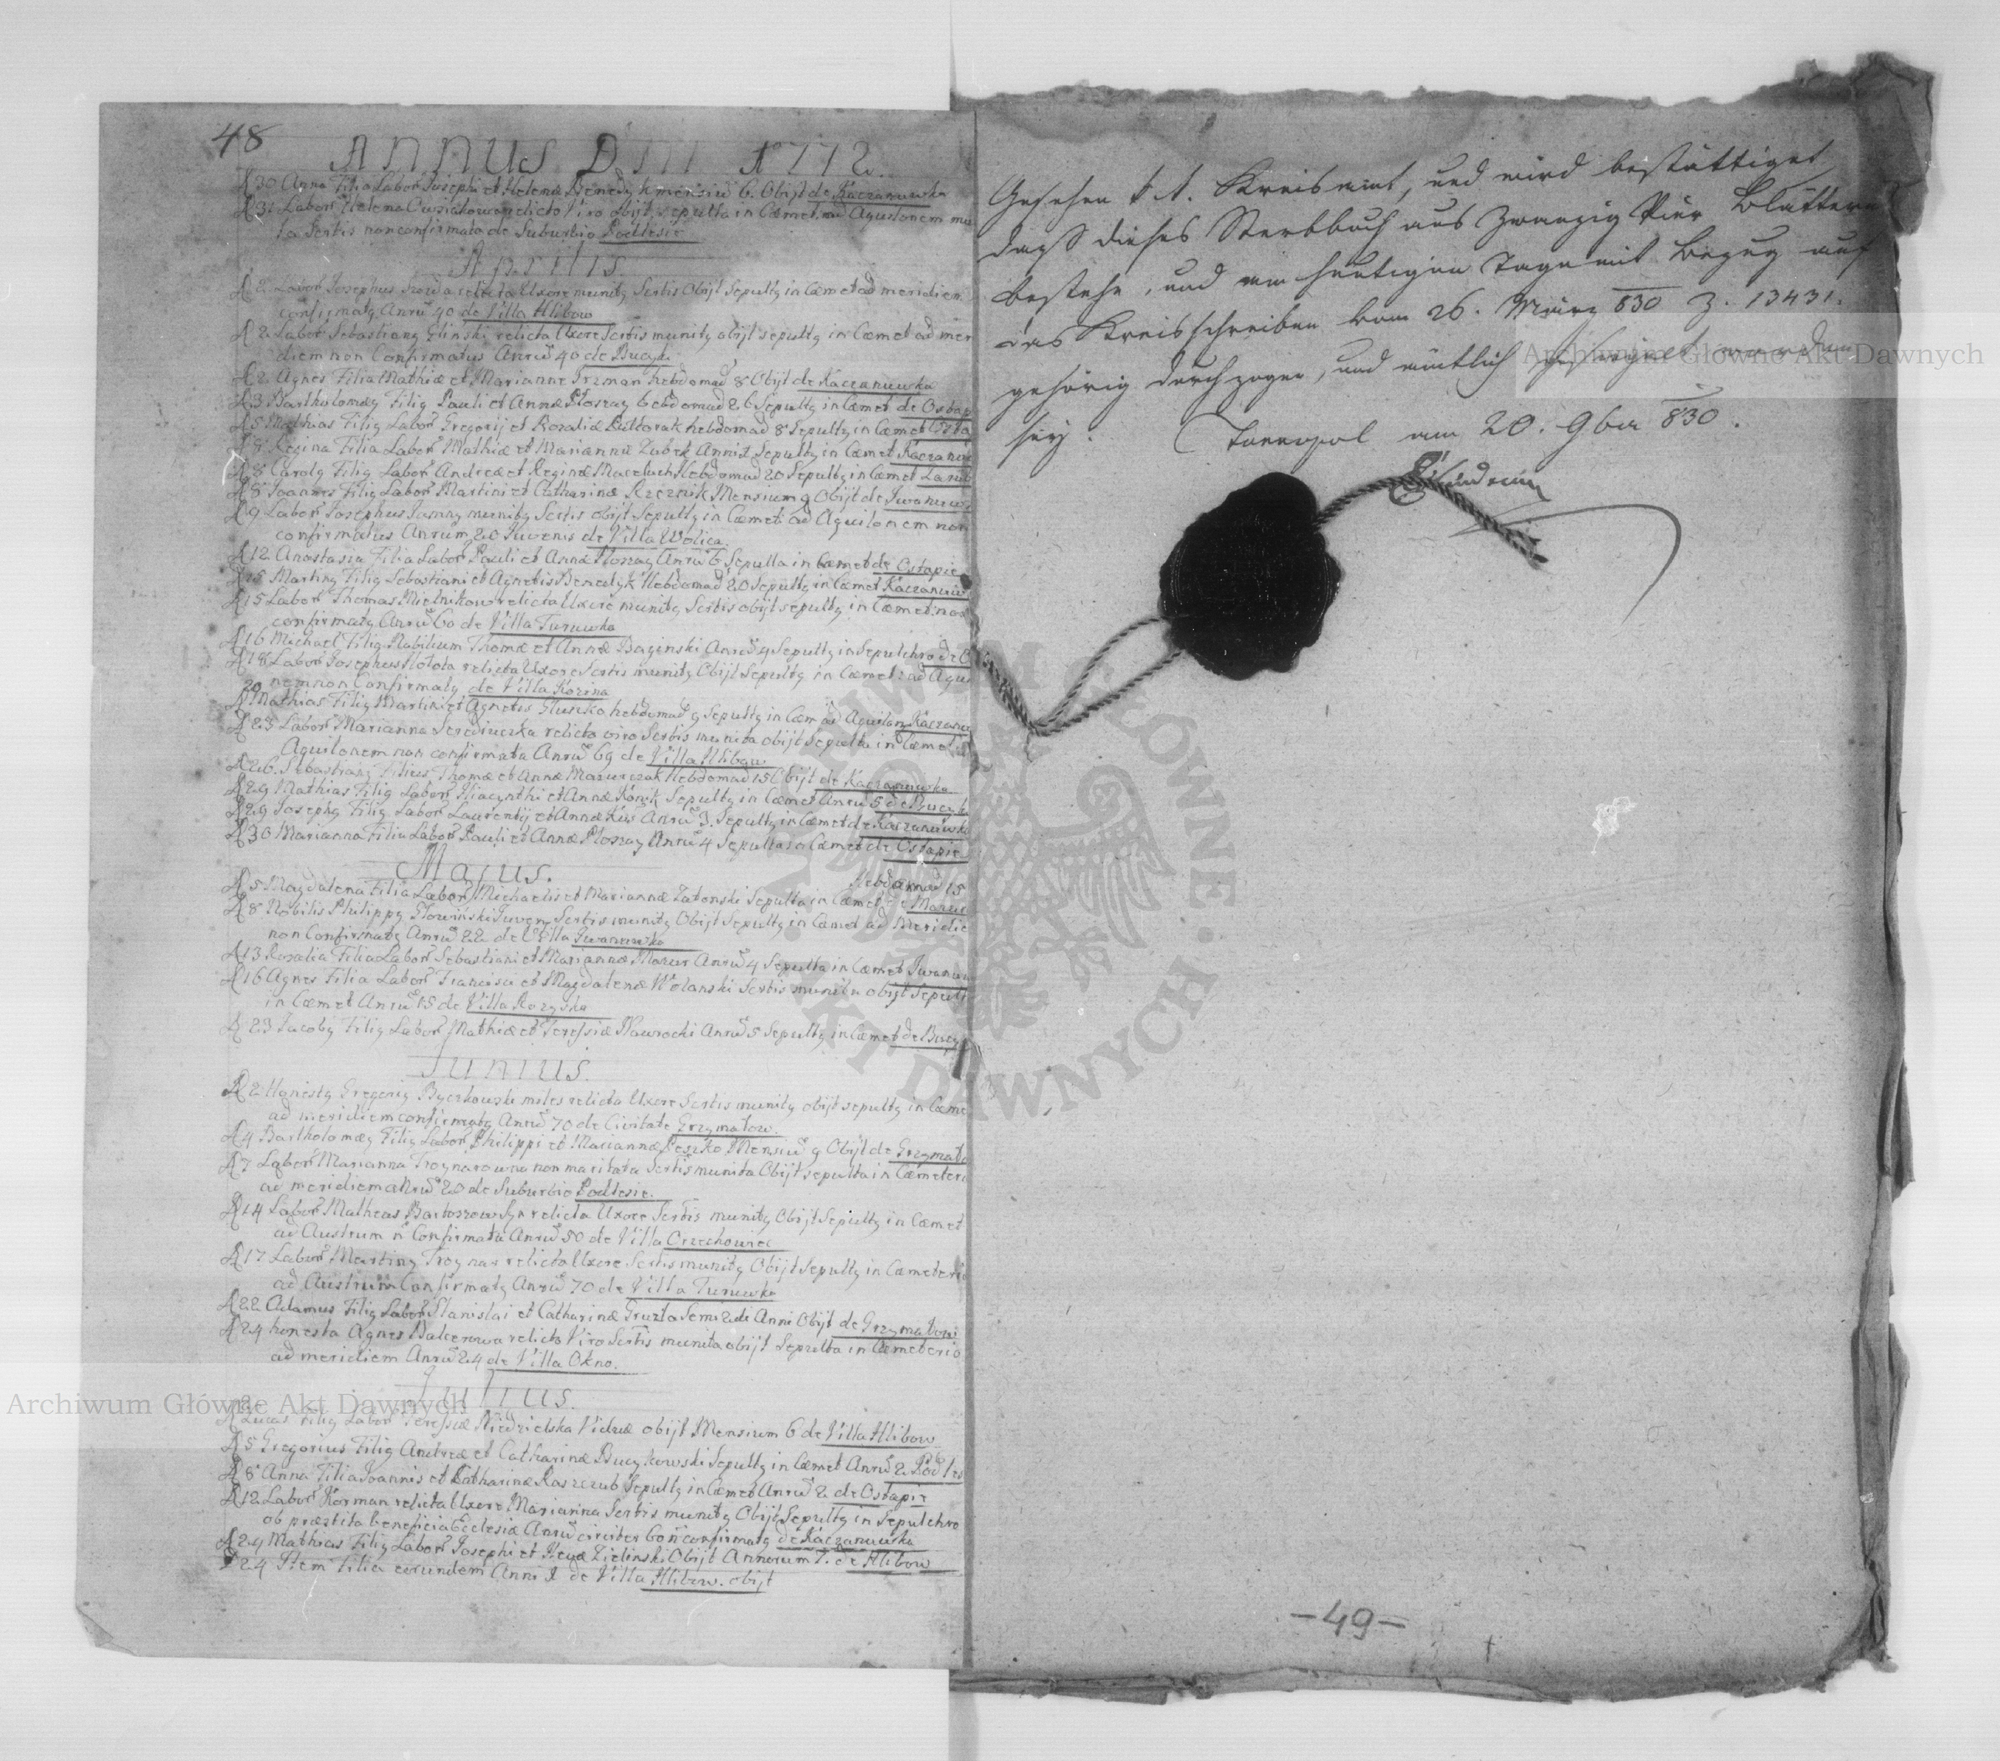 48
ANNUS Dni 1772.
30 Anna Filia Labor Josephi et Helenæ Benedyk mensiu 6. Obijt de Kaczanuwka
31 Labor Helena relicto Viro Obijt, sepulta in Cæmet ad Aquilonem mu
ta Sertis non confirmata de Suburbio Podlesie
Aprilis.
2 Labor Josephus relicta Uxore munitg Sertis Obijt Sepultg in Cæmet ad meridiem
confirmatg Anru 40 de Villa Hlibow
2 Labor Sebastiang Glinski relicta Uxore Sertis munitg obijt sepultg in Cæmet ad meri
diem non Confirmatus Anru 40 de Bucyki
2 Agnes Filia Mathiæ et Marianne hebdomad 8 Obijt de Kaczanuwka
3 Bartholomæg Filig Pauli et Annæ Ploszay hebdomad 26 Sepultg in Cæmet de Ostap
5 Mathias Filig Labor Gregorij et Rozaliæ Pultorak hebdomad 8 Sepultg in Cæmet Osta
8 Regina Filia Labor Mathiæ et Mariannæ Zubek Anni 1 Sepultg in Cæmet Kaczanuw
8 Carolg Filig Labor Andreæ et Reginæ Maceluch Hebdomad 20 Sepultg in Cæmet
8 Joannes Filig Labor Martini et Catharinæ Mensium 9 Obijt de Iwanuwk
9 Labor Josephus Jamny munitg Sertis obijt Sepultg in Cæmet ad Aquilonem non
confirmatus Anrum 20 Juvenis de Villa Wolica.
12 Anastasia Filia Labor Pauli et Annæ Ploszay Anru 6 Sepulta in Cæmet de Ostapie
15 Marting Filig Sebastiani et Agnetis Benedyk Hebdomad 20 Sepultg in Cæmet Kaczanuw
15 Labor Thomas Mielnikow relicta Uxore munitg Sertis obijt sepultg in Cæmet non
confirmatg Anru 60 de Villa Turuwka
16 Michael Filig Nobilium Thomæ et Annæ Baginski Anru 4 Sepultg in Sepulchro de
18 Labor Josephus Hołota relicta Uxore Sertis munitg Obijt Sepultg in Cæmet ad Aqui
nem non Confirmatg de Villa Kozina
20 Mathias Filig Martini et Agnetis Głuszko hebdomad 9 Sepultg in Cæm ad Aquilon Kaczanuw
23 Labor Marianna relicto viro Sertis munita obijt sepulta in Cæmet
Aquilonem non confirmata Anru 69 de Villa Hlibow
26. Sebastiang Filius Thomæ et Annæ Mazurczak Hebdomad 15 Obijt de Kaczanuwka
29 Mathias Filig Labor Hiacynthi et Annæ Konik Sepultg in Cæmet Anru 5 de Bucyk
29 Josephg Filig Labor Laurentij et Annæ Kus Anru 3. Sepultg in Cæmet de Kaczanuwka
30 Marianna Filia Labor Pauli et Annæ Ploszay Anru 4 Sepulta in Cæmet de Ostapie
Majus.
Hebdomad 15
5 Magdalena Filia Labor Michaelis et Mariannæ Zatonski Sepulta in Cæmet
8 Nobilis Philippg Słowinski Juven Sertis munitg Obijt Sepultg in Cæmet ad Meridie
non Confirmatg Anru 22 de Villa Iwanuwka
13 Rozalia Filia Labor Sebastiani et Mariannæ Mazur Anru 4 Sepulta in Cæmet Iwanuw
16 Agnes Filia Labor Francisci et Magdalenæ Wolanski Sertis munita obijt Sepult
in Cæmet Anru 15 de Villa Rozyska
23 Jacobg Filig Labor Mathiæ et Teressiæ Nawrocki Anru 5 Sepultg in Cæmet de Bucy
Junius.
2 Honestg Gregorig Byczkowski miles relicta Uxore Sertis munitg obijt sepultg in Cæme
ad meridiem confirmatg Anru 70 de Civitate Grzymałow.
4 Bartholomæg Filig Labor Philippi et Mariannæ Leszko Mensiu 9 Obijt de Grzymało
7 Labor Marianna Troynarowna non maritata Sertis munita Obijt sepulta in Cæmeteri
ad meridiem Anru 20 de Suburbio Podlesie.
14 Labor Matheus relicta Uxore Sertis munitg Obijt Sepultg in Cæmet
ad Austrum n Confirmatg Anru 50 de Villa Orzechowiec
17 Labor Marting Troynar relicta Uxore Sertis munitg Obijt Sepultg in Cæmeteri
ad Austrum Confirmatg Anru 70 de Villa Turuwka
22 Adamus Filig Labor Stanislai et Catharinæ Gruzła Semi 2di Anni Obijt de Grzymałow
24 honesta Agnes relicto Viro Sertis munita obijt Sepulta in Cæmeterio
ad meridiem Anru 24 de Villa Okno.
Julius.
2 Lucas Filig Labor Teressiæ Niedzielska Viduæ obijt Mensium 6 de Villa Hlibow
5 Gregorius Filig Andreæ et Catharinæ Buczkowski Sepultg in Cæmet Anru 2 Podles
8 Anna Filia Joannis et Catharinæ Kaszczub Sepultg in Cæmet Anru 2 de Ostapie
12 Labor Korman relicta Uxore Marianna Sertis munitg Obijt Sepultg in Sepulchro
ob præstita beneficia Ecclesiæ Anru circiter 60 n confirmatg de Kaczanuwka
24 Mathias Filig Labor Josephi et Evæ Zielinski Obijt Annorum 7. de Hlibow
24 Item Filia eorundem Anni 1 de Villa Hlibow. obijt
Gesehen k. k. Kreisamt, und wird bestättiget
daß dieses Sterbbuch aus Zwanzig Vier Blättern
bestehe, und am heutigen Tage mit Bezug auf
das Kreisschreiben vom 26. März 830 Z. 13431.
gehörig durchzogen, und ämtlich gesiegelt worden
sey. Tarnopol am 20. 9ber 830.
-49-
Archiwum Główne Akt Dawnych
Archiwum Główne Akt Dawnych
ARCHIWUM GŁÓWNE AKT DAWNYCH